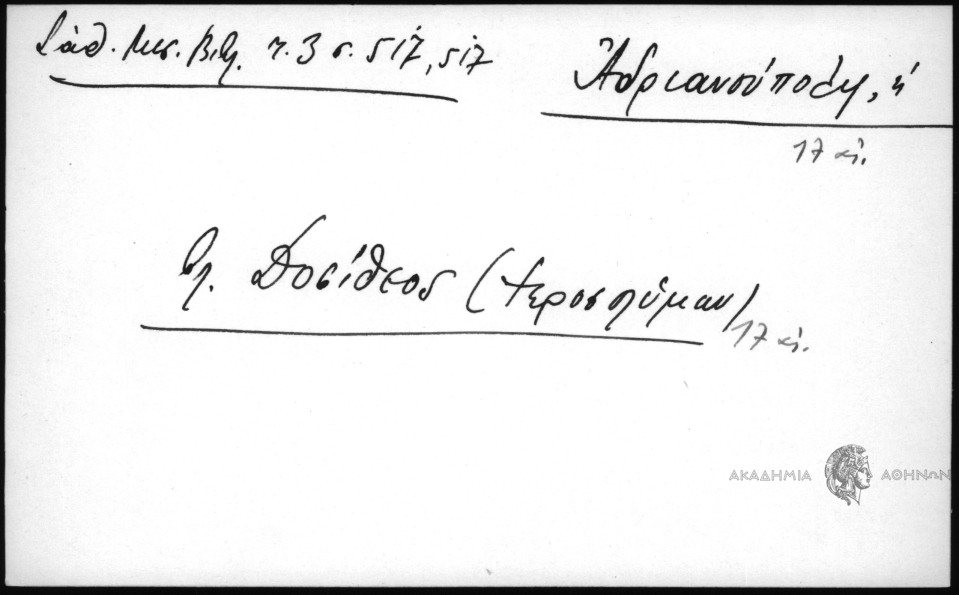 Σάθ. Μεσ. Βιβλ. τ. 3 σ. 517, 517
Ἀδριανούπολη, ἡ
17 αἰ.
βλ. Δοσίθεος (Ἱεροσολύμων)
17 αἰ.
ΑΚΑΔΗΜΙΑ ΑΘΗΝΩΝ